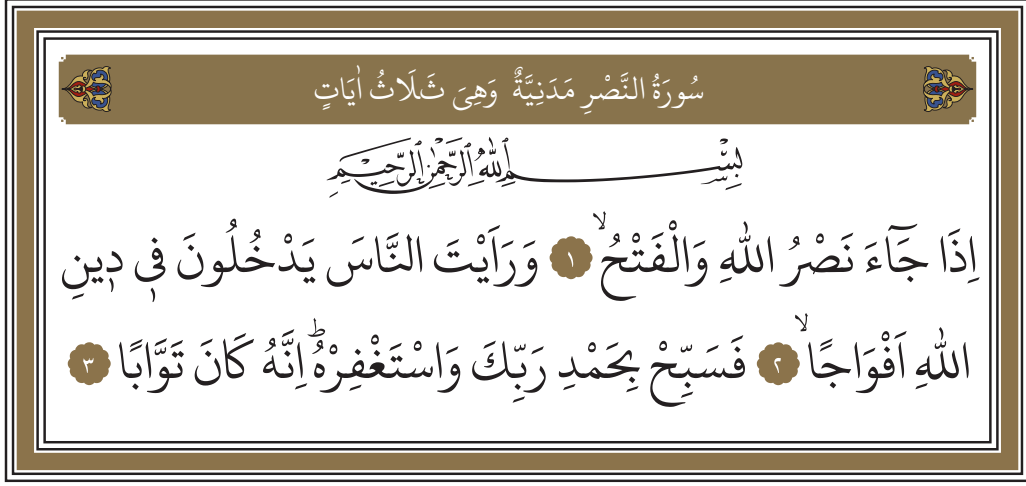 سُورَةُ النَّصْرِ مَدَنِيَّةٌ وَهِىَ ثَلَاثُ اٰيَاتٍ
بِسْمِ اللّٰهِ الرَّحْمٰنِ الرَّحِيمِ
اِذَا جَٓاءَ نَصْرُ اللّٰهِ وَالْفَتْحُۙ ﴿١﴾ وَرَاَيْتَ النَّاسَ يَدْخُلُونَ فٖى دٖينِ
اللّٰهِ اَفْوَاجًاۙ ﴿٢﴾ فَسَبِّحْ بِحَمْدِ رَبِّكَ وَاسْتَغْفِرْهُۜ اِنَّهُ كَانَ تَوَّابًا ﴿٣﴾